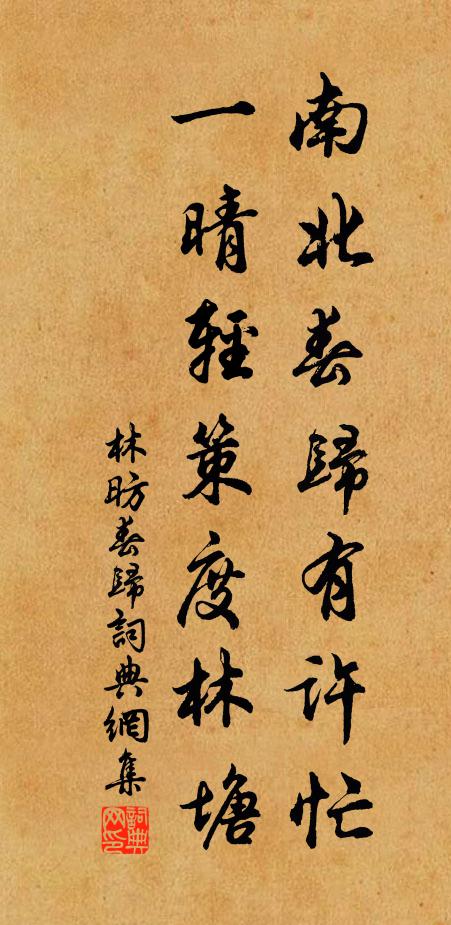 南北春歸有許忙
一晴輕策度林塘
林昉春歸詞典網集
詞典网印